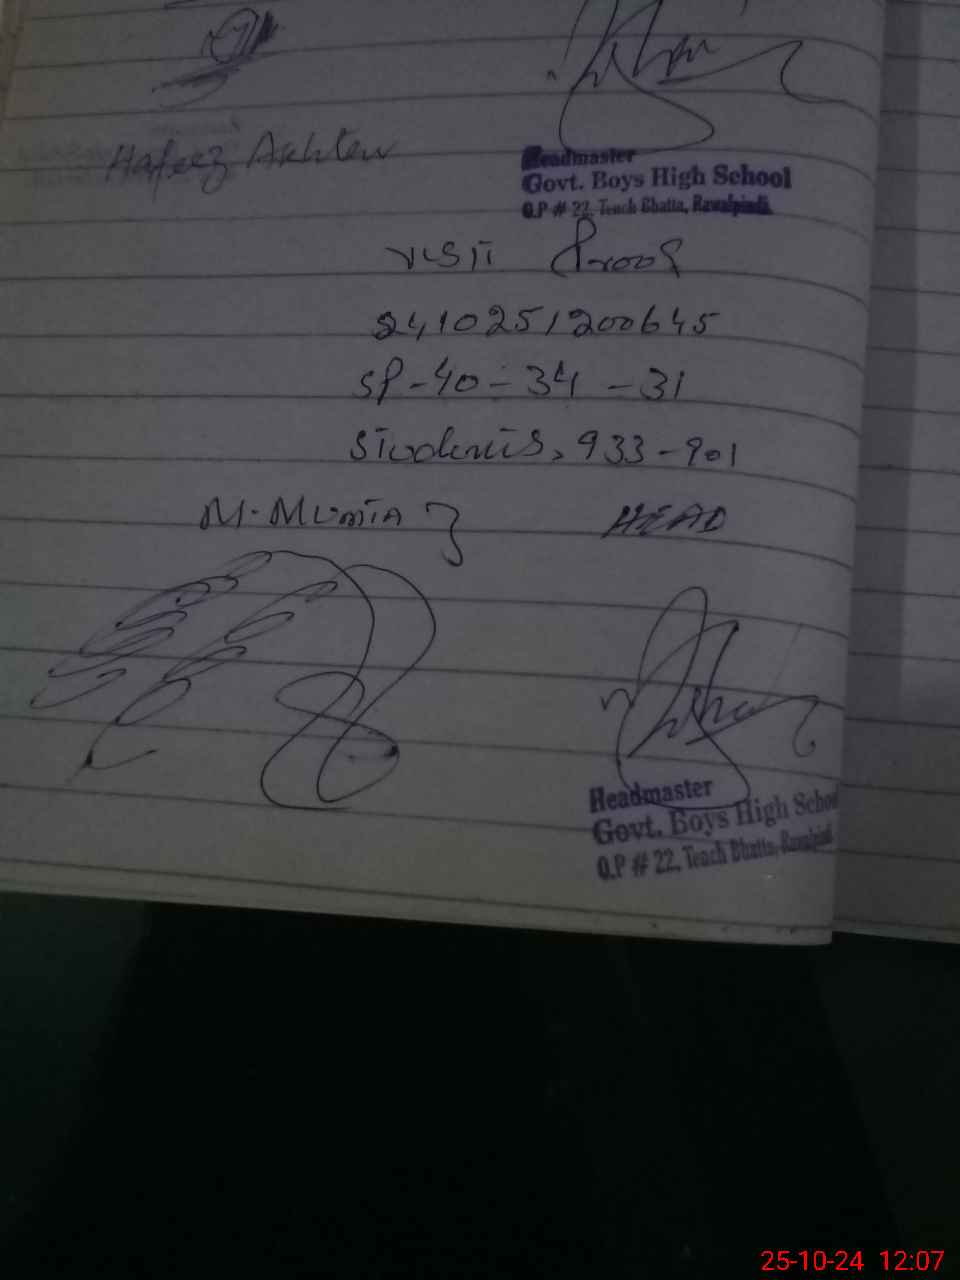 Hafeez Akhter
Headmaster
Govt. Boys High School
O.P # 22, Tench Bhatta, Rawalpindi.
Visit Proof
2410251200645
SP-40-34-31
Students, 933-901
M. Mumtaz HEAD
Headmaster
Govt. Boys High School
O.P # 22, Tench Bhatta, Rawalpindi
25-10-24 12:07